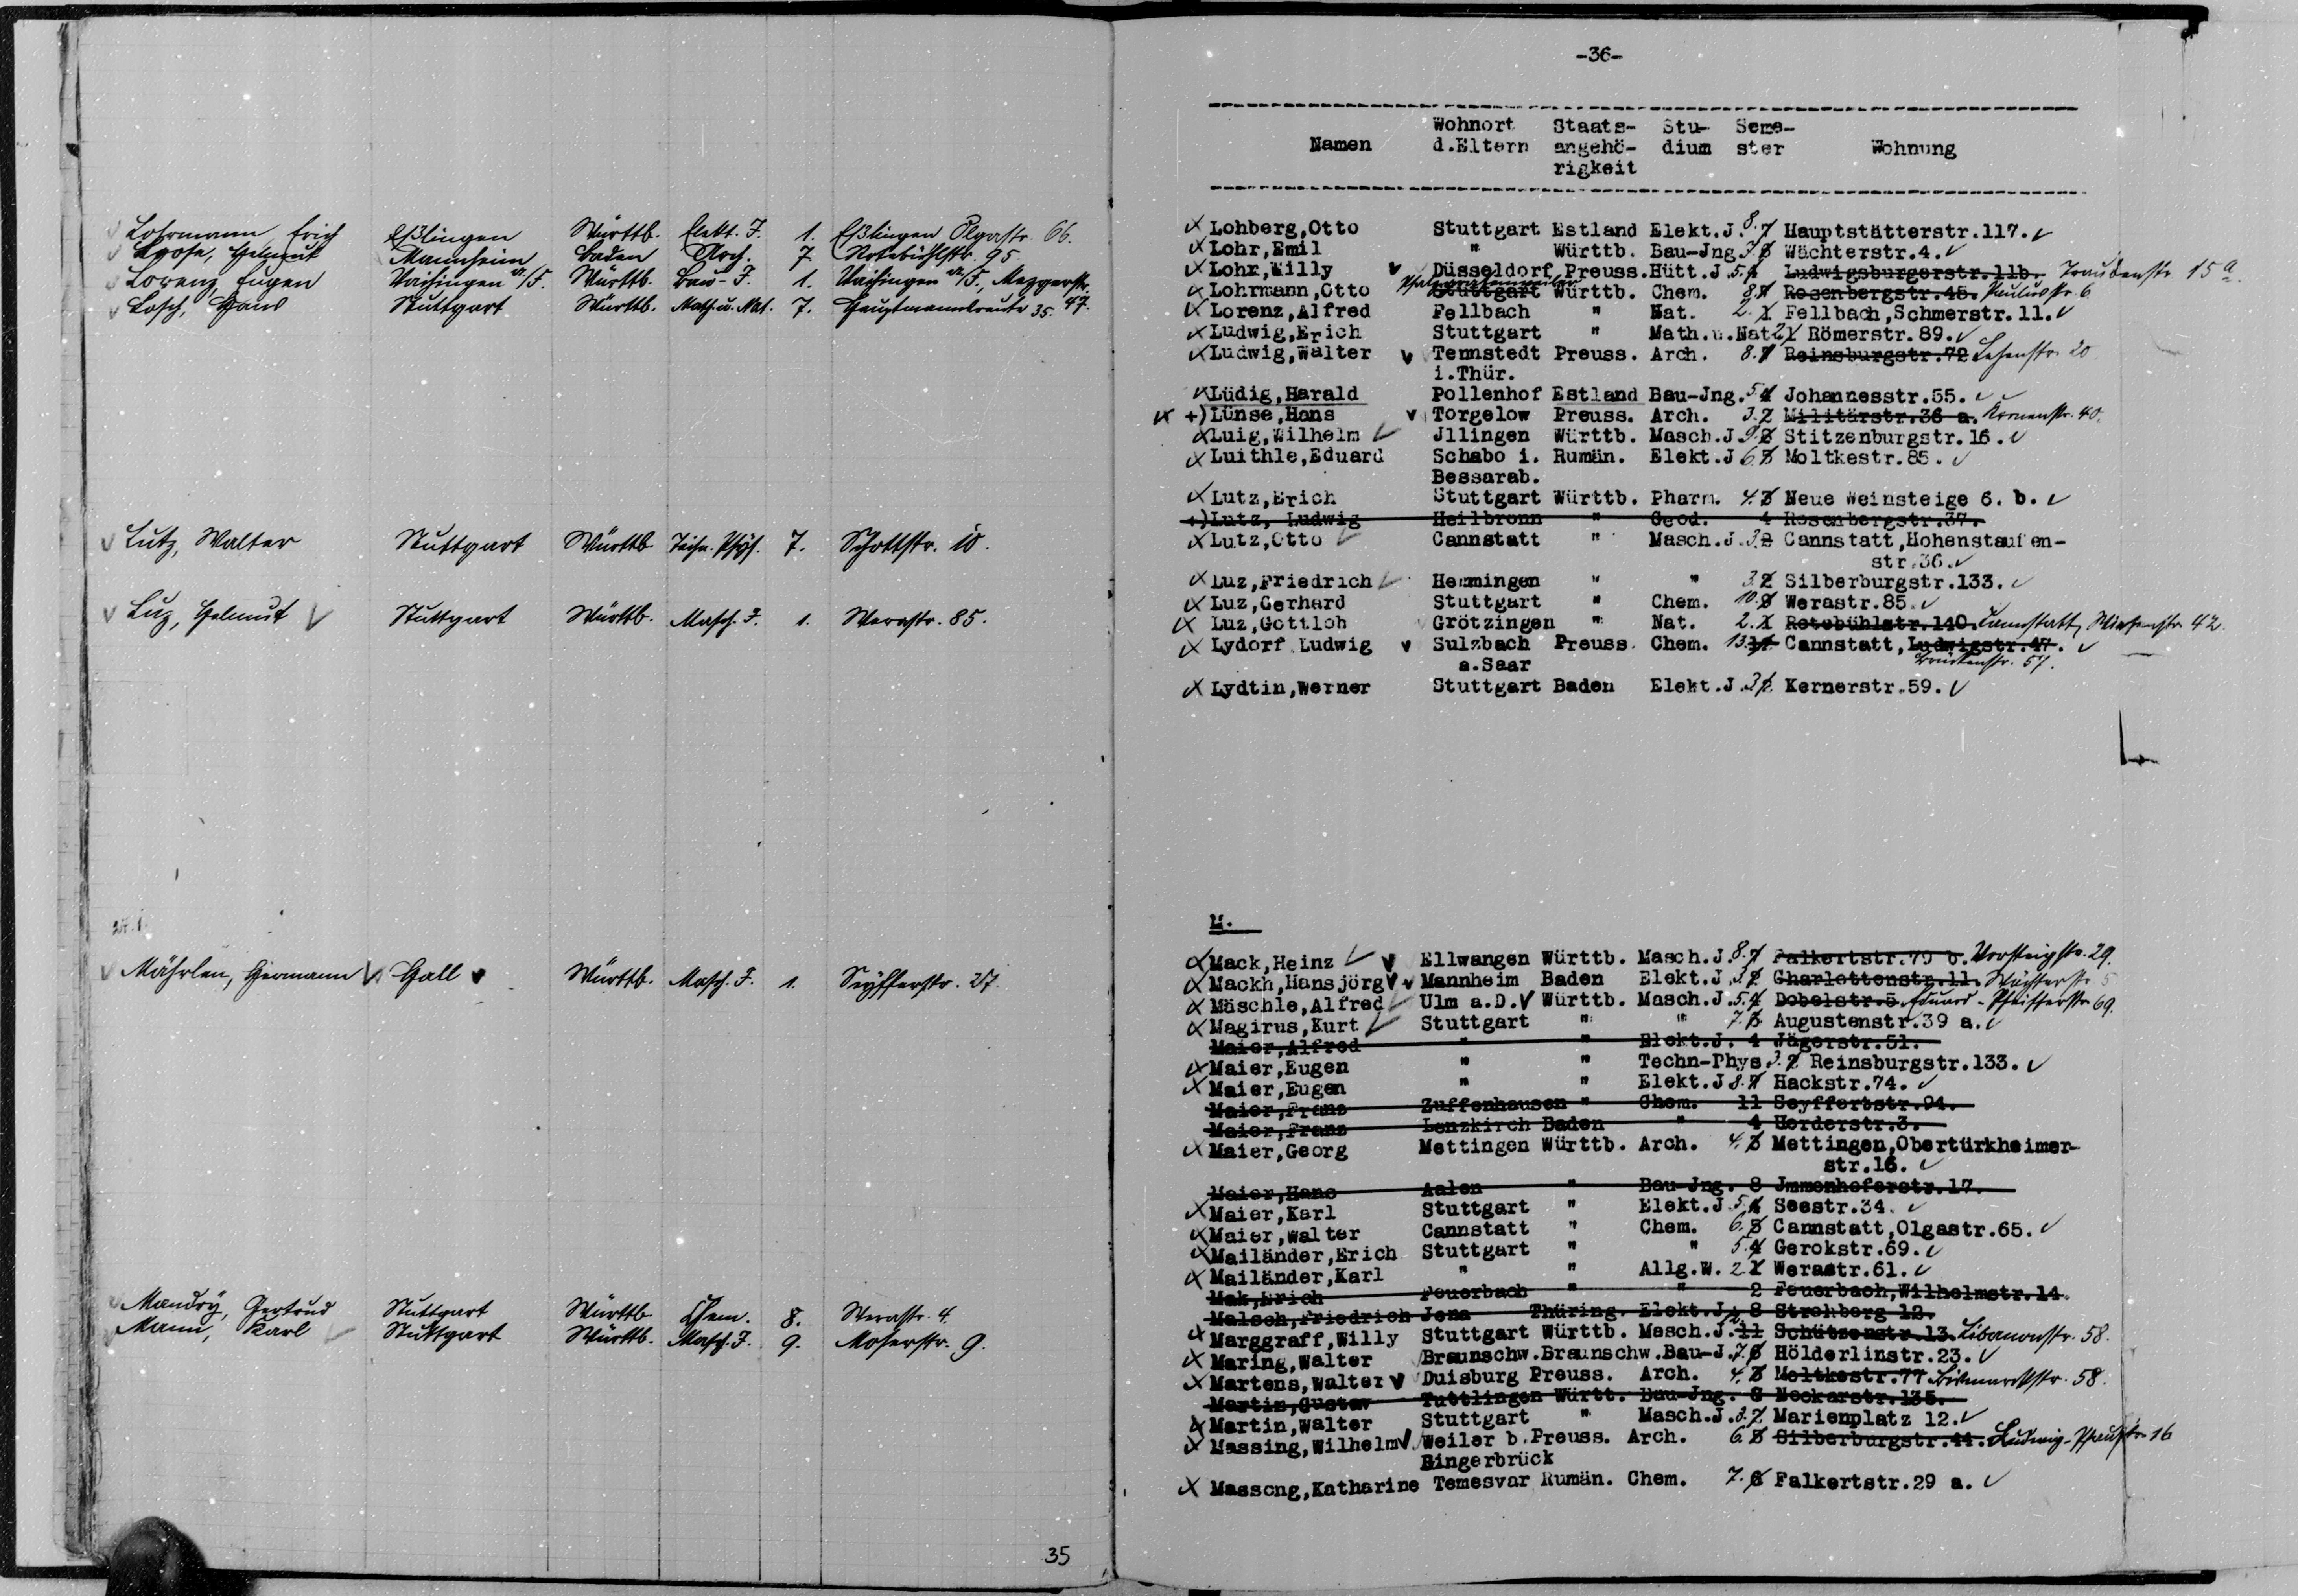 Lohrmann, Erich Eßlingen Württb. Elekt. J. 1. Eßlingen Olgastr. 66.
Loose, Helmut Mannheim Baden Arch. 7. Rotebühlstr. 95
Lorenz, Eugen Vaihingen a/F. Württb. Bau-J. 1. Vaihingen a/F., 47.
Losch, Hans Stuttgart Württb. Math. u. Nat. 7. Hauptmannsreute 35.
Lutz, Walter Stuttgart Württb. Techn. Phys. 7. Schottstr. 10.
Luz, Helmut Stuttgart Württb. Masch. J. 1. Werastr. 85.
Mährlen, Hermann Hall Württb. Masch. J. 1. Seyfferstr. 37
Mandry, Gertrud Stuttgart Württb. Chem. 8. Werastr. 4.
Mann, Karl Stuttgart Württb. Masch. J. 9. Moserstr. 9.
35
-36-
Namen Wohnort d.Eltern Staats-angehö-rigkeit Stu-dium Seme-ster Wohnung
Lohberg,Otto Stuttgart Estland Elekt.J. 8. 7 Hauptstätterstr.117.
Lohr,Emil " Württb. Bau-Jng 3. Wächterstr.4.
Lohr,Willy Düsseldorf Preuss. Hütt.J. 5. 4 Ludwigsburgerstr.11b. Traubenstr. 15 a.
Lohrmann,Otto Stuttgart Württb. Chem. 8. 7 Rosenbergstr.45. Paulusstr. 6
Lorenz,Alfred Fellbach " Nat. 2. 1 Fellbach,Schmerstr.11.
Ludwig,Erich Stuttgart " Math.u.Nat 2. 1 Römerstr.89.
Ludwig,Walter Tennstedt Preuss. Arch. 8. 7 Reinsburgstr.72 Lehenstr. 20
i.Thür.
Lüdig,Harald Pollenhof Estland Bau-Jng. 5. 4 Johannesstr.55.
+) Lünse,Hans Torgelow Preuss. Arch. 3. 2 Militärstr.36 a. Kronenstr. 40.
Luig,Wilhelm Jllingen Württb. Masch.J. 9. 8 Stitzenburgstr.16.
Luithle,Eduard Schabo i. Rumän. Elekt.J 6. 5 Moltkestr.85.
Bessarab.
Lutz,Erich Stuttgart Württb. Pharm. 4. 3 Neue Weinsteige 6. b.
+) Lutz, Ludwig Heilbronn " Geod. 4 Rosenbergstr.37.
Lutz,Otto Cannstatt " Masch.J. 3. 2 Cannstatt,Hohenstaufen-
str.36.
Luz,Friedrich Hemmingen " " 3. 2 Silberburgstr.133.
Luz,Gerhard Stuttgart " Chem. 10. 8 Werastr.85.
Luz,Gottlob Grötzingen " Nat. 2. 1 Rotebühlstr.140. Cannstatt, Wiesenstr. 42.
Lydorf Ludwig Sulzbach Preuss. Chem. 13. Cannstatt,Ludwigstr.47.
a.Saar Brückenstr. 57.
Lydtin,Werner Stuttgart Baden Elekt.J. 3. 2 Kernerstr.59.
M.
Mack,Heinz Ellwangen Württb. Masch.J 8. 7 Falkertstr.79 b. Vorsteigstr. 29.
Mackh,Hansjörg Mannheim Baden Elekt.J 3. 2 Charlottenstr.11. Wächterstr. 5
Mäschle,Alfred Ulm a.D. Württb. Masch.J. 5. 4 Dobelstr.5. Eduard-Pfeifferstr. 69.
Magirus,Kurt Stuttgart " " 7. Augustenstr.39 a.
Maier,Alfred " " Elekt.J. 4 Jägerstr.51.
Maier,Eugen " " Techn-Phys. 3. 2 Reinsburgstr.133.
Maier,Eugen " " Elekt.J 8. 7 Hackstr.74.
Maier,Franz Zuffenhausen " Chem. 11 Seyffertstr.94.
Maier,Franz Lenzkirch Baden " 4 Herderstr.3.
Maier,Georg Mettingen Württb. Arch. 4. 3 Mettingen,Obertürkheimer-
str.16.
Maier,Hans Aalen " Bau-Jng. 8 Jmmenhoferstr.17.
Maier,Karl Stuttgart " Elekt.J 5. 4 Seestr.34.
Maier,Walter Cannstatt " Chem. 6. 5 Cannstatt,Olgastr.65.
Mailänder,Erich Stuttgart " " 5. 4 Gerokstr.69.
Mailänder,Karl " " Allg.W. 2. 1 Werastr.61.
Mak,Erich Feuerbach " " 2 Feuerbach,Wilhelmstr.14.
Malsch,Friedrich Jena Thüring. Elekt.J. 8 Strohberg 12.
Marggraff,Willy Stuttgart Württb. Masch.J. 11 Schützenstr.13. Libanonstr. 58.
Maring,Walter Braunschw.Braunschw.Bau-J. 7. 6 Hölderlinstr.23.
Martens,Walter Duisburg Preuss. Arch. 4. 3 Moltkestr.77 Bismarckstr. 58.
Martin,Gustav Tuttlingen Württ. Bau-Jng. 8 Neckarstr.135.
Martin,Walter Stuttgart " Masch.J. 3. 2 Marienplatz 12.
Massing,Wilhelm Weiler b. Preuss. Arch. 6. 5 Silberburgstr.44. Ludwig-Pfaustr. 16
Bingerbrück
Massong,Katharine Temesvar Rumän. Chem. 7. 6 Falkertstr.29 a.